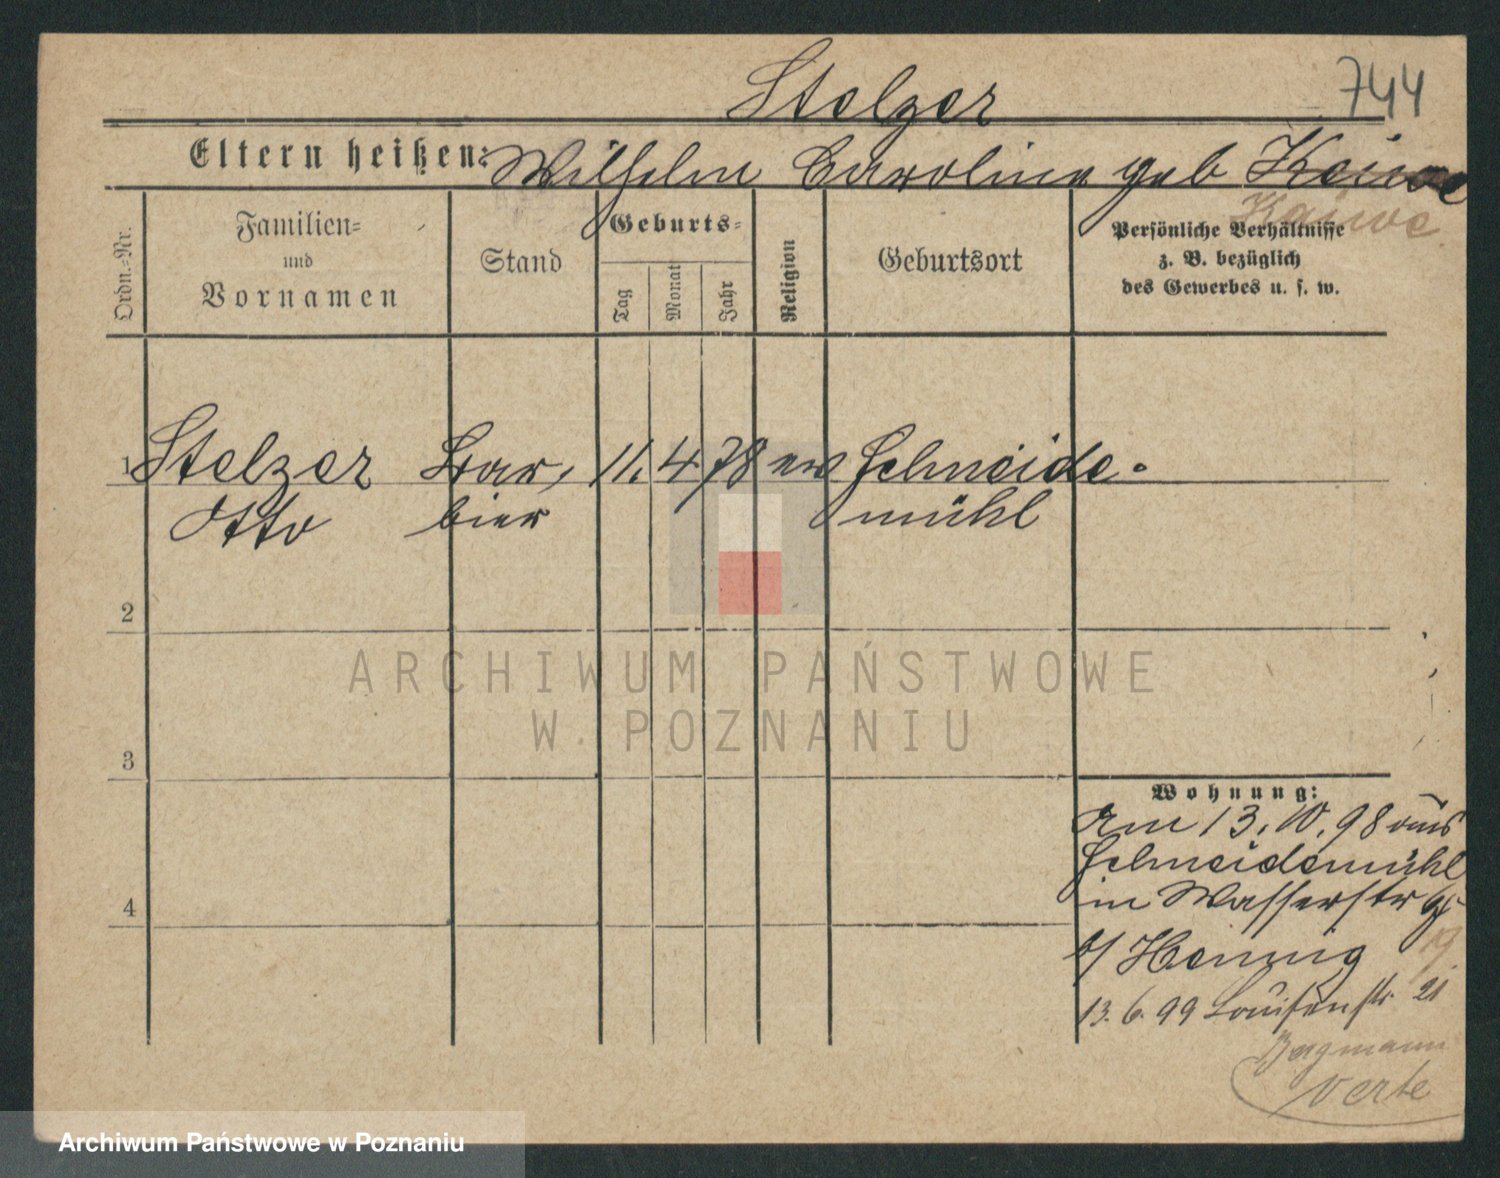 Stelzer 744
Eltern heißen: Wilhelm Caroline geb
Kaiwe
Ordn.-Nr.
Familien-
und
Vornamen
Stand
Geburts-
Tag
Monat
Jahr
Religion
Geburtsort
Persönliche Verhältnisse
z. B. bezüglich
des Gewerbes u. s. w.
1 Stelzer Bar, 11. 4 78 ev Schneide-
Otto bier mühl
2
3
4
ARCHIWUM PAŃSTWOWE
W POZNANIU
Wohnung:
Am 13.10.98 aus
Schneidemühl
in Wasserstr
b/ Hennig 19
13. 6. 99 Louisenstr. 21
Bergmann
verte
Archiwum Państwowe w Poznaniu